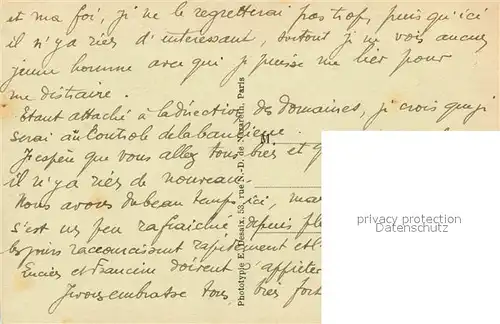 et ma foi, je ne le regretterai pas trop, puis qu'ici
il n'y a rien d'intéressant, surtout je ne vois aucun
jeune homme avec qui je puisse me lier pour
me distraire.
Etant attaché à la direction des Domaines, je crois que je
serai au Controle de la banlieue.
J'espère que vous allez tous bien et q
il n'y a rien de nouveau.
Nous avons du beau temps ici, mai
s'est un peu rafraichi, depuis pl
les jours raccourcissent rapidement et l
et Francine doivent s'
Je vous embrasse tous bien fort
51.
Phototypie E. Desaix, 53, rue N.-D. de Nazareth, Paris
privacy protection
Datenschutz